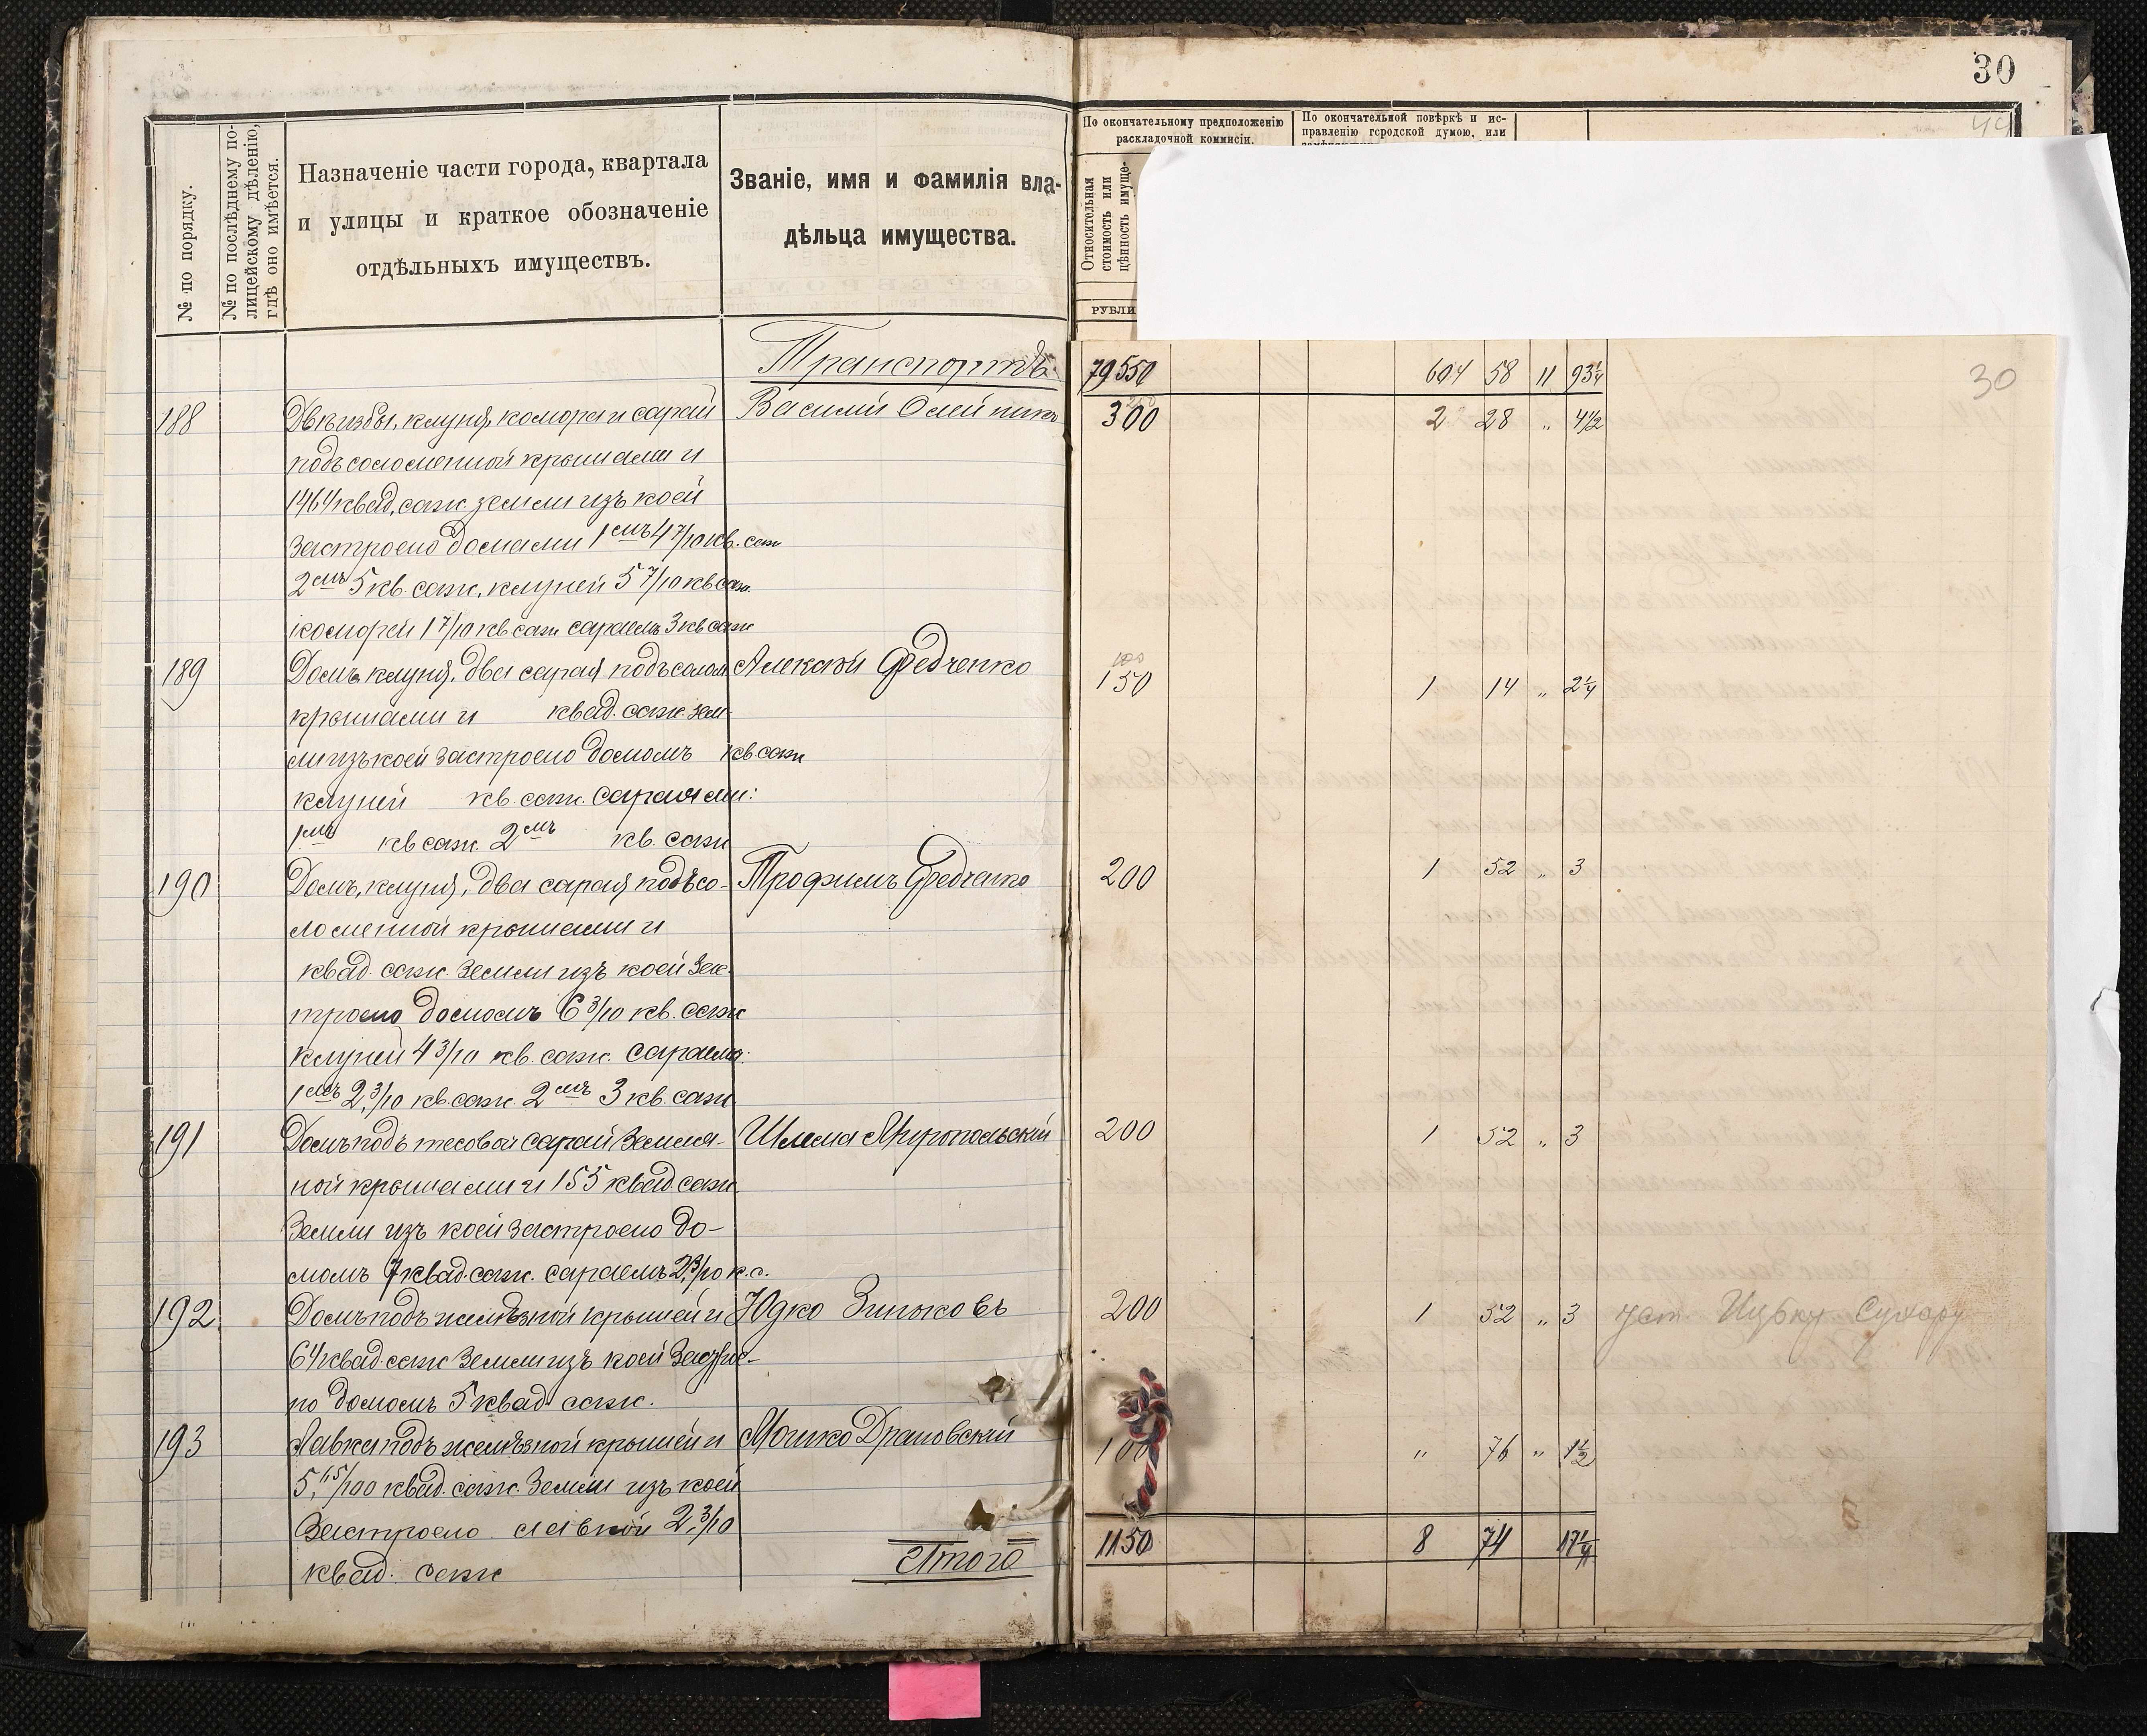 30
№ по порядку.
№ по послѣднему по-
лицейскому дѣленію,
гдѣ оно имѣется.
Назначеніе части города, квартала
и улицы и краткое обозначеніе
отдѣльныхъ имуществъ.
Званіе, имя и фамилія вла-
дѣльца имущества.
По окончательному предположенію
раскладочной коммисіи.
По окончательной повѣркѣ и ис-
правленію городской думою, или
Относительная
стоимость или
цѣнность имуще-
РУБЛИ
Транспортъ 79550 604 58 11 93¼
30
188 Двѣ избы, клуня, комора и сарай Василий Олейникъ 300 2 28 „ 4½
подъ соломенной крышами и
1464 квад. саж. земли изъ коей
застроено домами 1емъ 4 7/10 кв. саж
2емъ 5 кв. саж. клуней 5 7/10 кв саж.
коморей 1 7/10 кв саж сараемъ 3 кв саж
189 Домъ, клуня, два сарая подъ солом Алексѣй Федченко 150 1 14 „ 2¼
100
крышами и квад. саж. зем
ли изъ коей застроено домомъ кв. саж
клуней кв. саж. сараями:
1мъ кв саж. 2емъ кв. саж
190 Домъ, клуня, два сарая подъ со- Трофимъ Федченко 200 1 52 „ 3
ломенной крышами и
квад. саж. земли изъ коей зас
троено домомъ 6 3/10 кв. саж
клуней 4 3/10 кв. саж. сараемъ:
1емъ 2,3/10 кв. саж. 2емъ 3 кв. саж
191 Домъ подъ тесовой сарай земля- Шлема Миропольскій 200 1 52 „ 3
ной крышами и 155 квад. саж
земли изъ коей застроено до-
момъ 7 квад. саж. сараемъ 2,3/10 к. с.
192 Домъ подъ желѣзной крышей и Юдко Зиньковъ 200 1 52 „ 3
64 квад. саж земли изъ коей застрое-
но домомъ 5 квад саж.
193 Лавка подъ желѣзной крышей и Мошко Драновскій 100 „ 76 „ 1½
квад. саж. земли изъ коей
застроено лавкой 2,3/10
квад. саж
Итого 1150 8 74 17¼